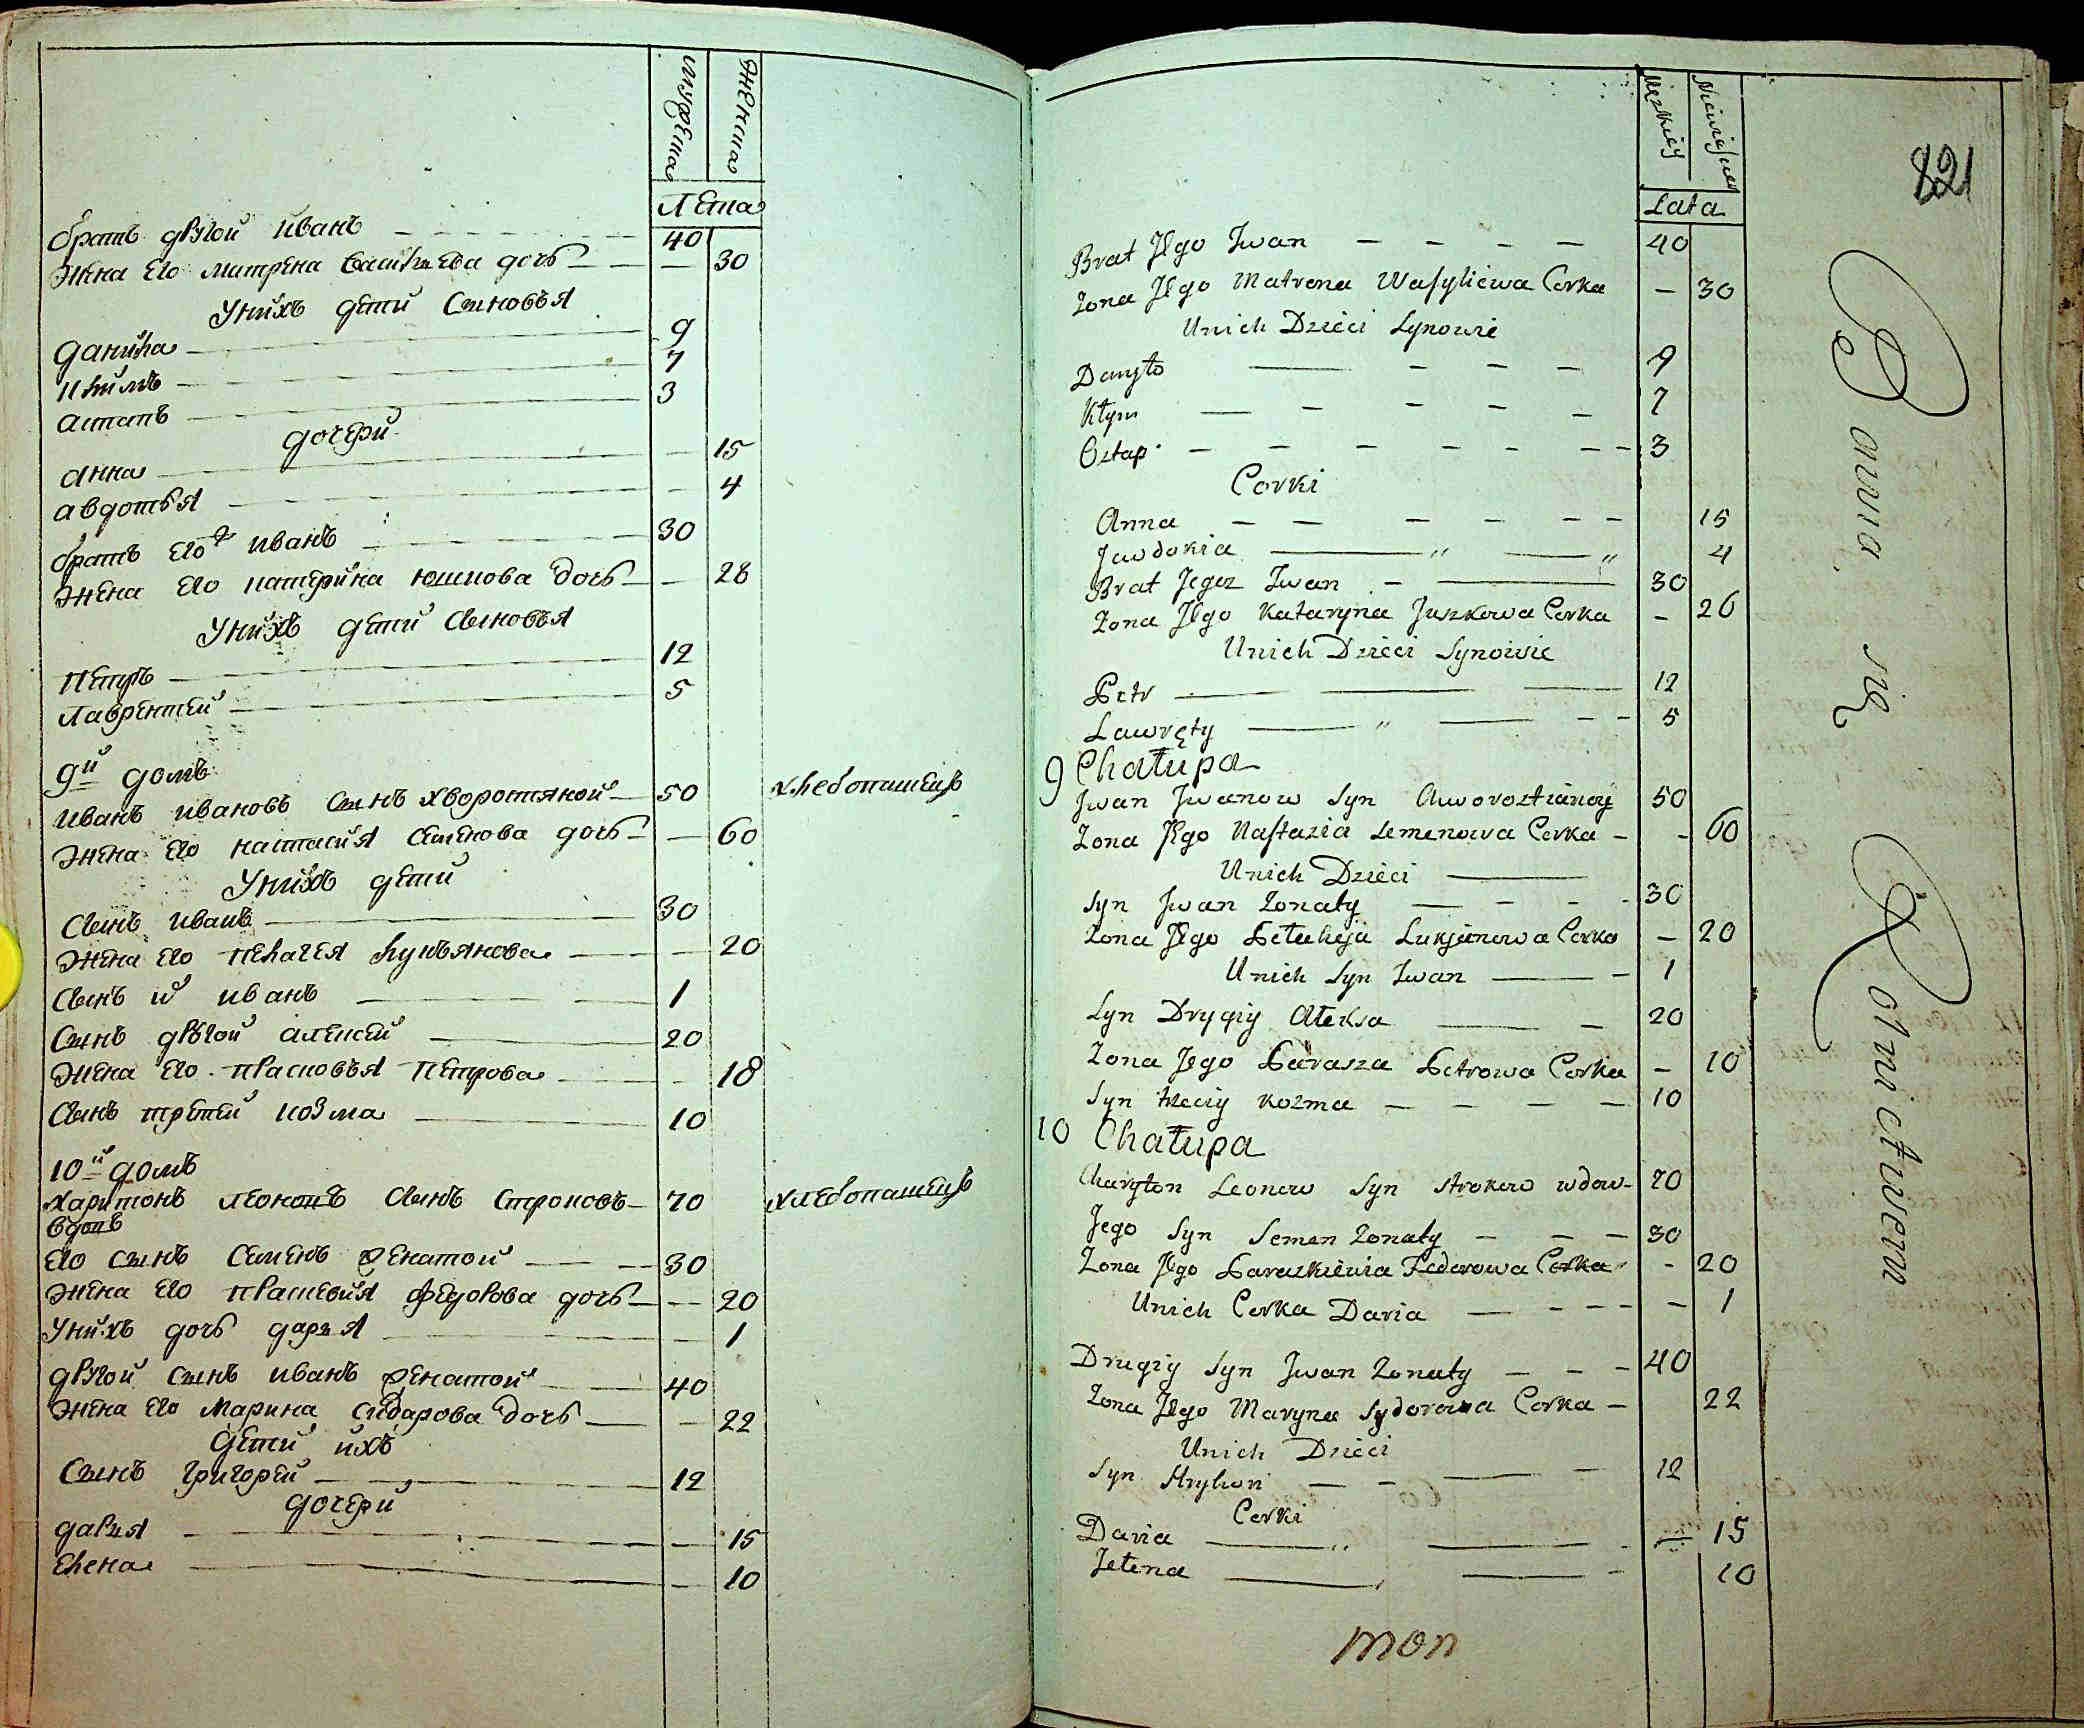 мужеска
женска
Лета
братъ другой иванъ 40
жена его матрена васильева дочь 30
У нихъ дети Сыновья
данила 9
климъ 7
астапъ 3
дочери
анна 15
авдотья 4
братъ его иванъ 30
жена его катерина юшкова дочь 28
У нихъ дети Сыновья
петръ 12
лаврентей 5
9й домъ
иванъ ивановъ Сынъ хворостяной 50 хлебопашецъ
жена его настасия Семенова дочь 60
У нихъ дети
Сынъ иванъ 30
жена его пелагея лукьянова 20
Сынъ й иванъ 1
Сынъ другой алексей 20
жена его прасковья петрова 18
Сынъ третей козма 10
10й домъ
харитонъ леоновъ Сынъ Строковъ 70 хлебопашецъ
вдовъ
его Сынъ Семенъ женатой 30
жена его праскевия федорова дочь 20
У нихъ дочь дарья 1
другой Сынъ иванъ женатой 40
жена его марина Сидарова дочь 22
дети ихъ
Сынъ григорей 12
дочери
дарья 15
елена 10
821
Męzkiey
Niewiasney
Lata
Brat Jego Iwan 40
Zona Jego Matrena Wasyliewa Corka 30
Unich Dzieci Synowie
Danyło 9
Kłym 7
Ostap 3
Corki
Anna 15
Jawdokia 4
Brat Jegoz Iwan 30
Zona Jego Kataryna Juszkowa Corka 26
Unich Dzieci Synowie
Petr 12
Lawręty 5
9 Chałupa
Jwan Jwanow Syn Chworostianoy 50
Zona Jego Nastazia Semenowa Corka 60
Unich Dzieci
Syn Jwan Zonaty 30
Zona Jego Pełaheja Lukjanowa Corka 20
Unich Syn Iwan 1
Syn Drygiy Ałeksa 20
Zona Jego Parasza Petrowa Corka 10
Syn trzeciy Kozma 10
10 Chałupa
Charyton Leonow Syn Strokow wdow 70
Jego Syn Semen Zonaty 30
Zona Jego Paraskiewia Fedorowa Corka 20
Unich Corka Daria 1
Drugiy Syn Jwan Zonaty 40
Zona Jego Maryna Sydorowa Corka 22
Unich Dzieci
Syn Hryhori 12
Corki
Daria 15
Jełena 10
mon
Bawia się Rolnictwem